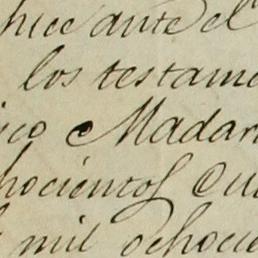 hice ante el
los testame
ico Madar
hocientos Cu
l mil ochocie